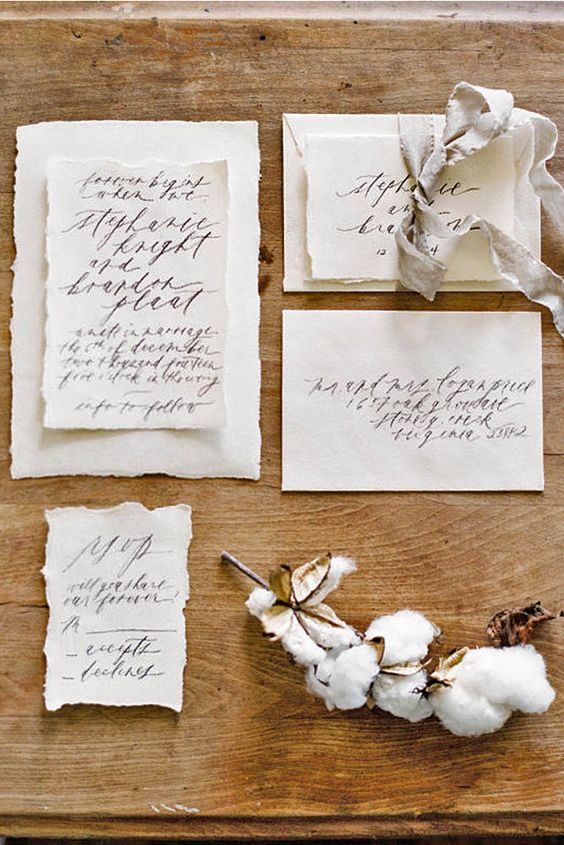 forever begins
when we
stephanie
knight
and
brandon
plaat
unite in marriage
the 6th of december
two thousand fourteen
five o'clock in the evening
info to follow
stephanie
and
bra
12 4
mr. and mrs. logan price
16 oak grove ave
stoney creek
virginia 23882
rsvp
will you share
our forever?
M
accepts
declines